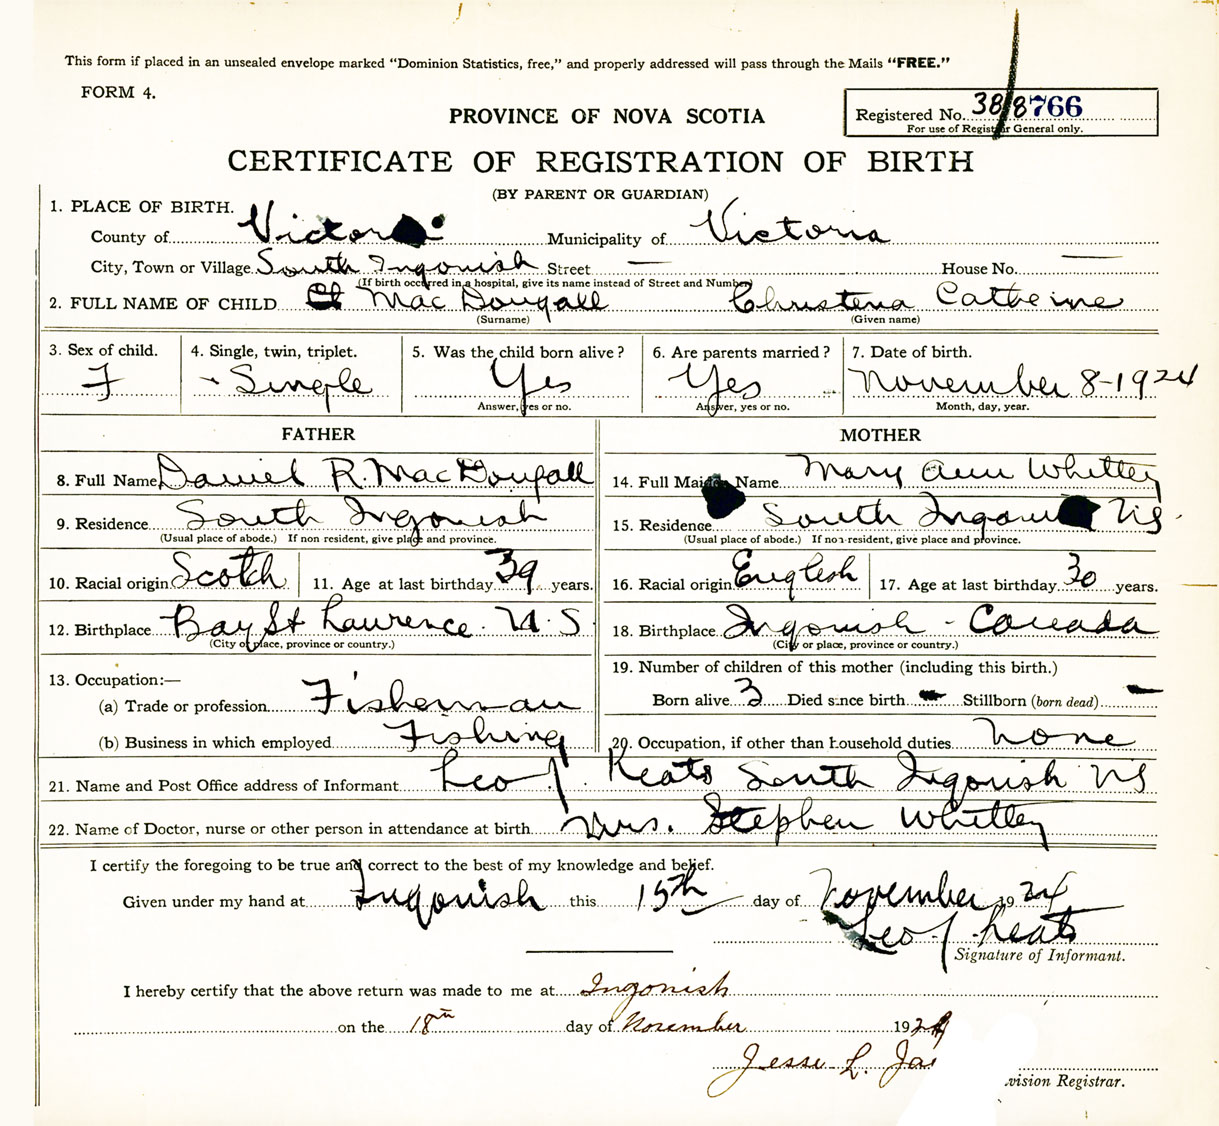 This form if placed in an unsealed envelope marked "Dominion Statistics, free," and properly addressed will pass through the Mails "FREE."
FORM 4.
PROVINCE OF NOVA SCOTIA
Registered No. 38 8766
For use of Registrar General only.
CERTIFICATE OF REGISTRATION OF BIRTH
(BY PARENT OR GUARDIAN)
1. PLACE OF BIRTH.
County of Victoria Municipality of Victoria
City, Town or Village South Ingonish Street — House No. —
(If birth occurred in a hospital, give its name instead of Street and Number)
2. FULL NAME OF CHILD MacDougall Christena Catherine
(Surname) (Given name)
3. Sex of child. 4. Single, twin, triplet. 5. Was the child born alive? 6. Are parents married? 7. Date of birth.
F Single Yes Yes November 8-1924
Answer, yes or no. Answer, yes or no. Month, day, year.
FATHER MOTHER
8. Full Name Daniel R. MacDougall 14. Full Maiden Name Mary Ann Whitley
9. Residence South Ingonish 15. Residence South Ingonish NS.
(Usual place of abode.) If non resident, give place and province. (Usual place of abode.) If non-resident, give place and province.
10. Racial origin Scotch 11. Age at last birthday 39 years. 16. Racial origin English 17. Age at last birthday 30 years.
12. Birthplace Bay St Lawrence. N.S. 18. Birthplace Ingonish - Canada
(City or place, province or country.) (City or place, province or country.)
19. Number of children of this mother (including this birth.)
13. Occupation:—
(a) Trade or profession Fisherman Born alive 3 Died since birth Stillborn (born dead)
(b) Business in which employed Fishing 20. Occupation, if other than household duties none
21. Name and Post Office address of Informant Leo J. Keats South Ingonish NS
22. Name of Doctor, nurse or other person in attendance at birth Mrs. Stephen Whitley
I certify the foregoing to be true and correct to the best of my knowledge and belief.
Given under my hand at Ingonish this 15th day of November 1924
Leo J. Keats
Signature of Informant.
I hereby certify that the above return was made to me at Ingonish
on the 18th day of November 192
Jesse L.
vision Registrar.